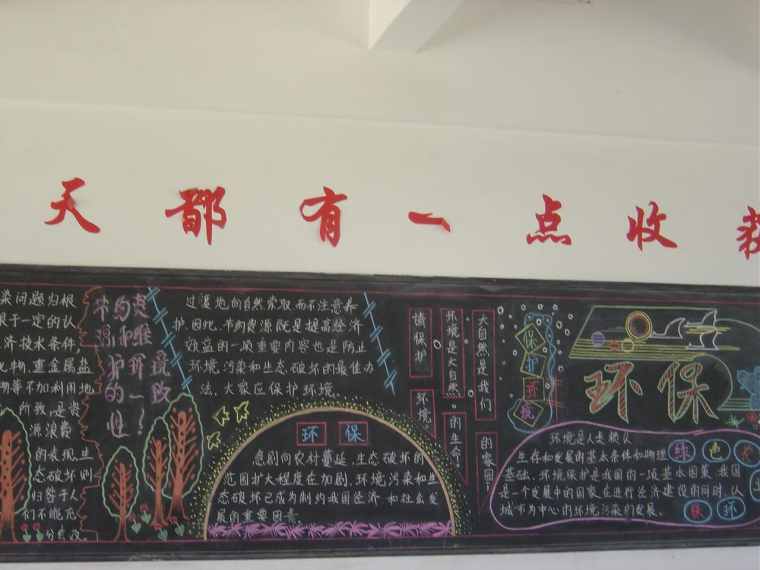 天都有一点收获
染问题为根
于一定的认
济技术条件,
物,重金属盐
等不加利用地
所就是资
源浪费
的表现,生
态破坏则
归咎于人
们不能充
节约资
源和唯
护环境
的一
过量地向自然索取而不注意养
护.因此,节约资源既是提高经济
效益的一项重要内容也是防止
环境污染和生态破坏的最佳办
法.大家应保护环境.
环保
急剧向农村蔓延,生态破坏的
范围扩大程度在加剧.环境污染和生
态破坏已成为制约我国经济和社会发
展的重要因素.
请保护
环境
环境是大自然
的生命!
大自然是我们
的家园!
保护环境
环保
环境是人类赖以
生存和发展的基本条件和物理
基础.环境保护是我国的一项基本国策.我国
是一个发展中的国家在进行经济建设的同时,以
城市为中心的环境污染的发展.
绿色
环